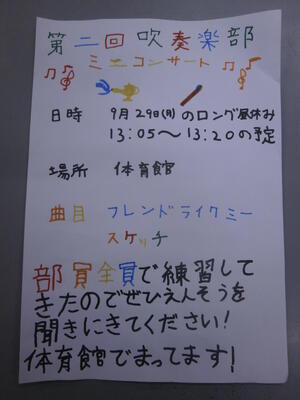 第二回吹奏楽部
ミニコンサート
日時 9月29日(月)のロング昼休み
13:05〜13:20の予定
場所 体育館
曲目 フレンドライクミー
スケッチ
部員全員で練習して
きたのでぜひえんそうを
聞きにきてください!
体育館でまってます!